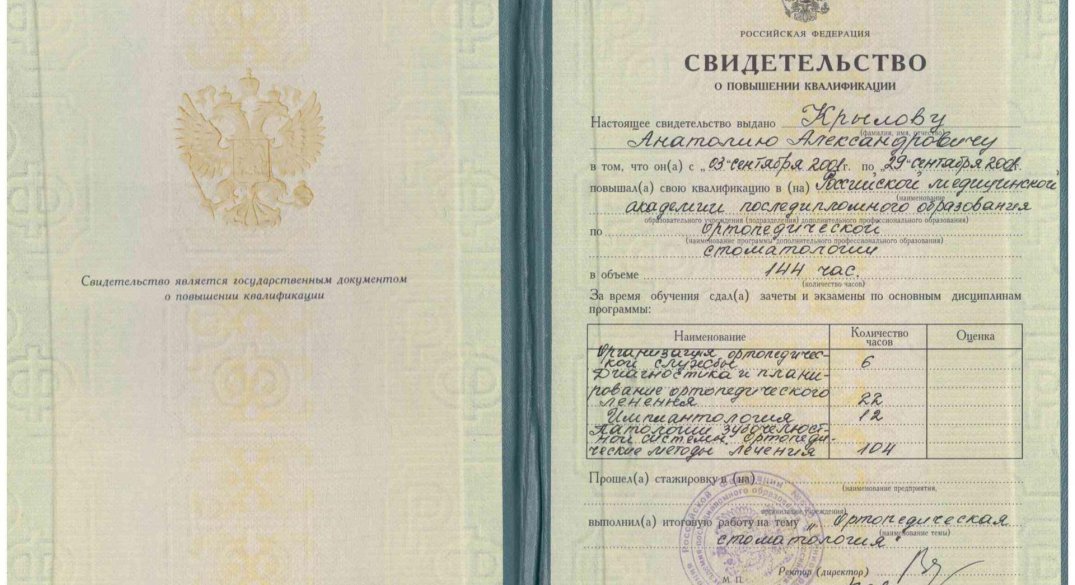 Свидетельство является государственным документом
о повышении квалификации
РОССИЙСКАЯ ФЕДЕРАЦИЯ
СВИДЕТЕЛЬСТВО
О ПОВЫШЕНИИ КВАЛИФИКАЦИИ
Настоящее свидетельство выдано Крылову
(фамилия, имя, отчество)
Анатолию Александровичу
в том, что он(а) с „03 сентября 2008г. по „29 сентября 2008г.
повышал(а) свою квалификацию в (на) Российской медицинской
(наименование
академии последипломного образования
образовательного учреждения (подразделения) дополнительного профессионального образования)
по ортопедической
(наименование программы дополнительного профессионального образования)
стоматологии
в объеме 144 час.
(количество часов)
За время обучения сдал(а) зачеты и экзамены по основным дисциплинам
программы:
Наименование Количество часов Оценка
Организация ортопедичес-
кой службы 6
Диагностика и плани-
рование ортопедического
лечения 22
Имплантология 12
Патологии зубочелюст-
ной системы. Ортопеди-
ческие методы лечения 104
Прошел(а) стажировку в (на)
(наименование предприятия,
организации, учреждения)
выполнил(а) итоговую работу на тему „Ортопедическая
(наименование темы)
стоматология"
Ректор (директор)
М. П.